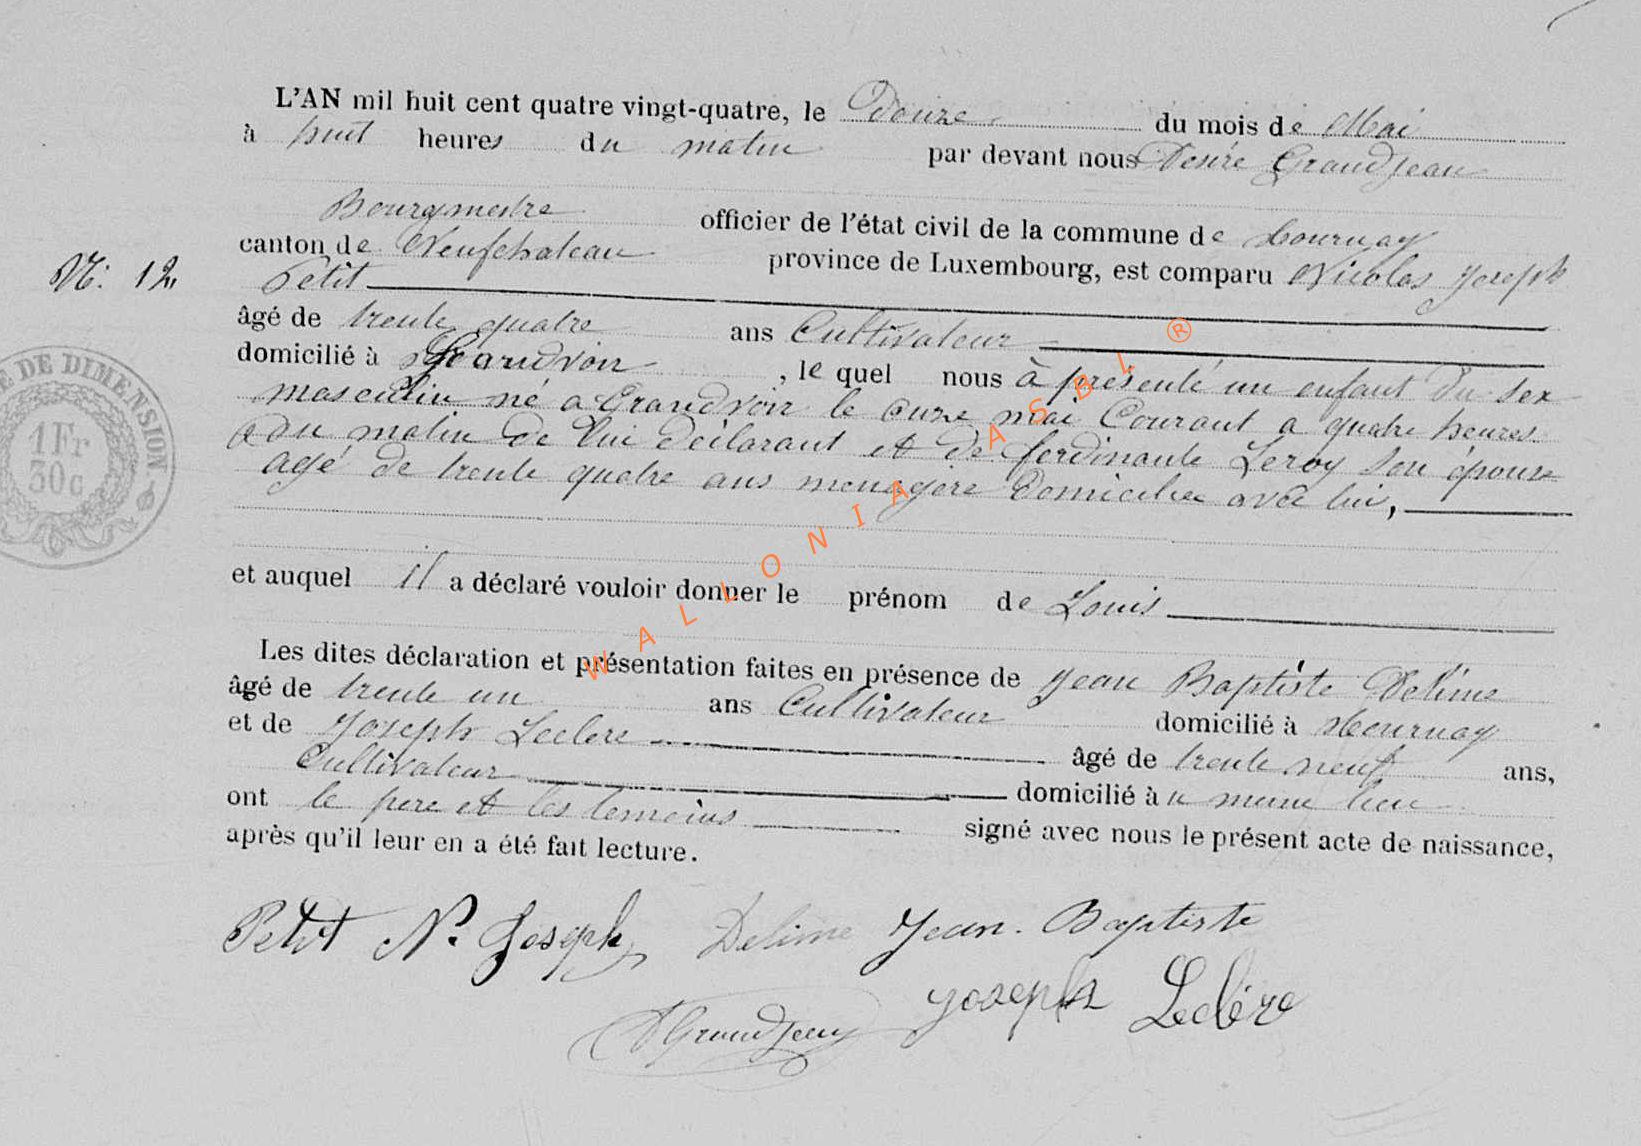 L'AN mil huit cent quatre vingt-quatre, le Douze du mois de Mai
à huit heures du matin par devant nous Desiré Grandjean
Bourgmestre officier de l'état civil de la commune de Tournay
canton de Neufchateau province de Luxembourg, est comparu Nicolas Joseph
N: 12 Petit
âgé de trente quatre ans Cultivateur
domicilié à Grandvoir, le quel nous à présenté un enfant du sex
masculin né a Grandvoir le onze mai Courant a quatre heures
du matin de lui déclarant et de ferdinante Leroy son épouse
agé de trente quatre ans menagère domiciliee avec lui,
et auquel il a déclaré vouloir donner le prénom de Louis
Les dites déclaration et présentation faites en présence de Jean Baptiste Delime
âgé de trente un ans Cultivateur domicilié à Tournay
et de Joseph Leclere âgé de trente neuf ans,
Cultivateur domicilié à u meme lieu
ont le pere et les temoins signé avec nous le présent acte de naissance,
après qu'il leur en a été fait lecture.
Petit N. Joseph Delime Jean. Baptiste
Joseph Leclére
DGrandjean
E DE DIMENSION
1Fr
30c
WALLONIA ASBL ®